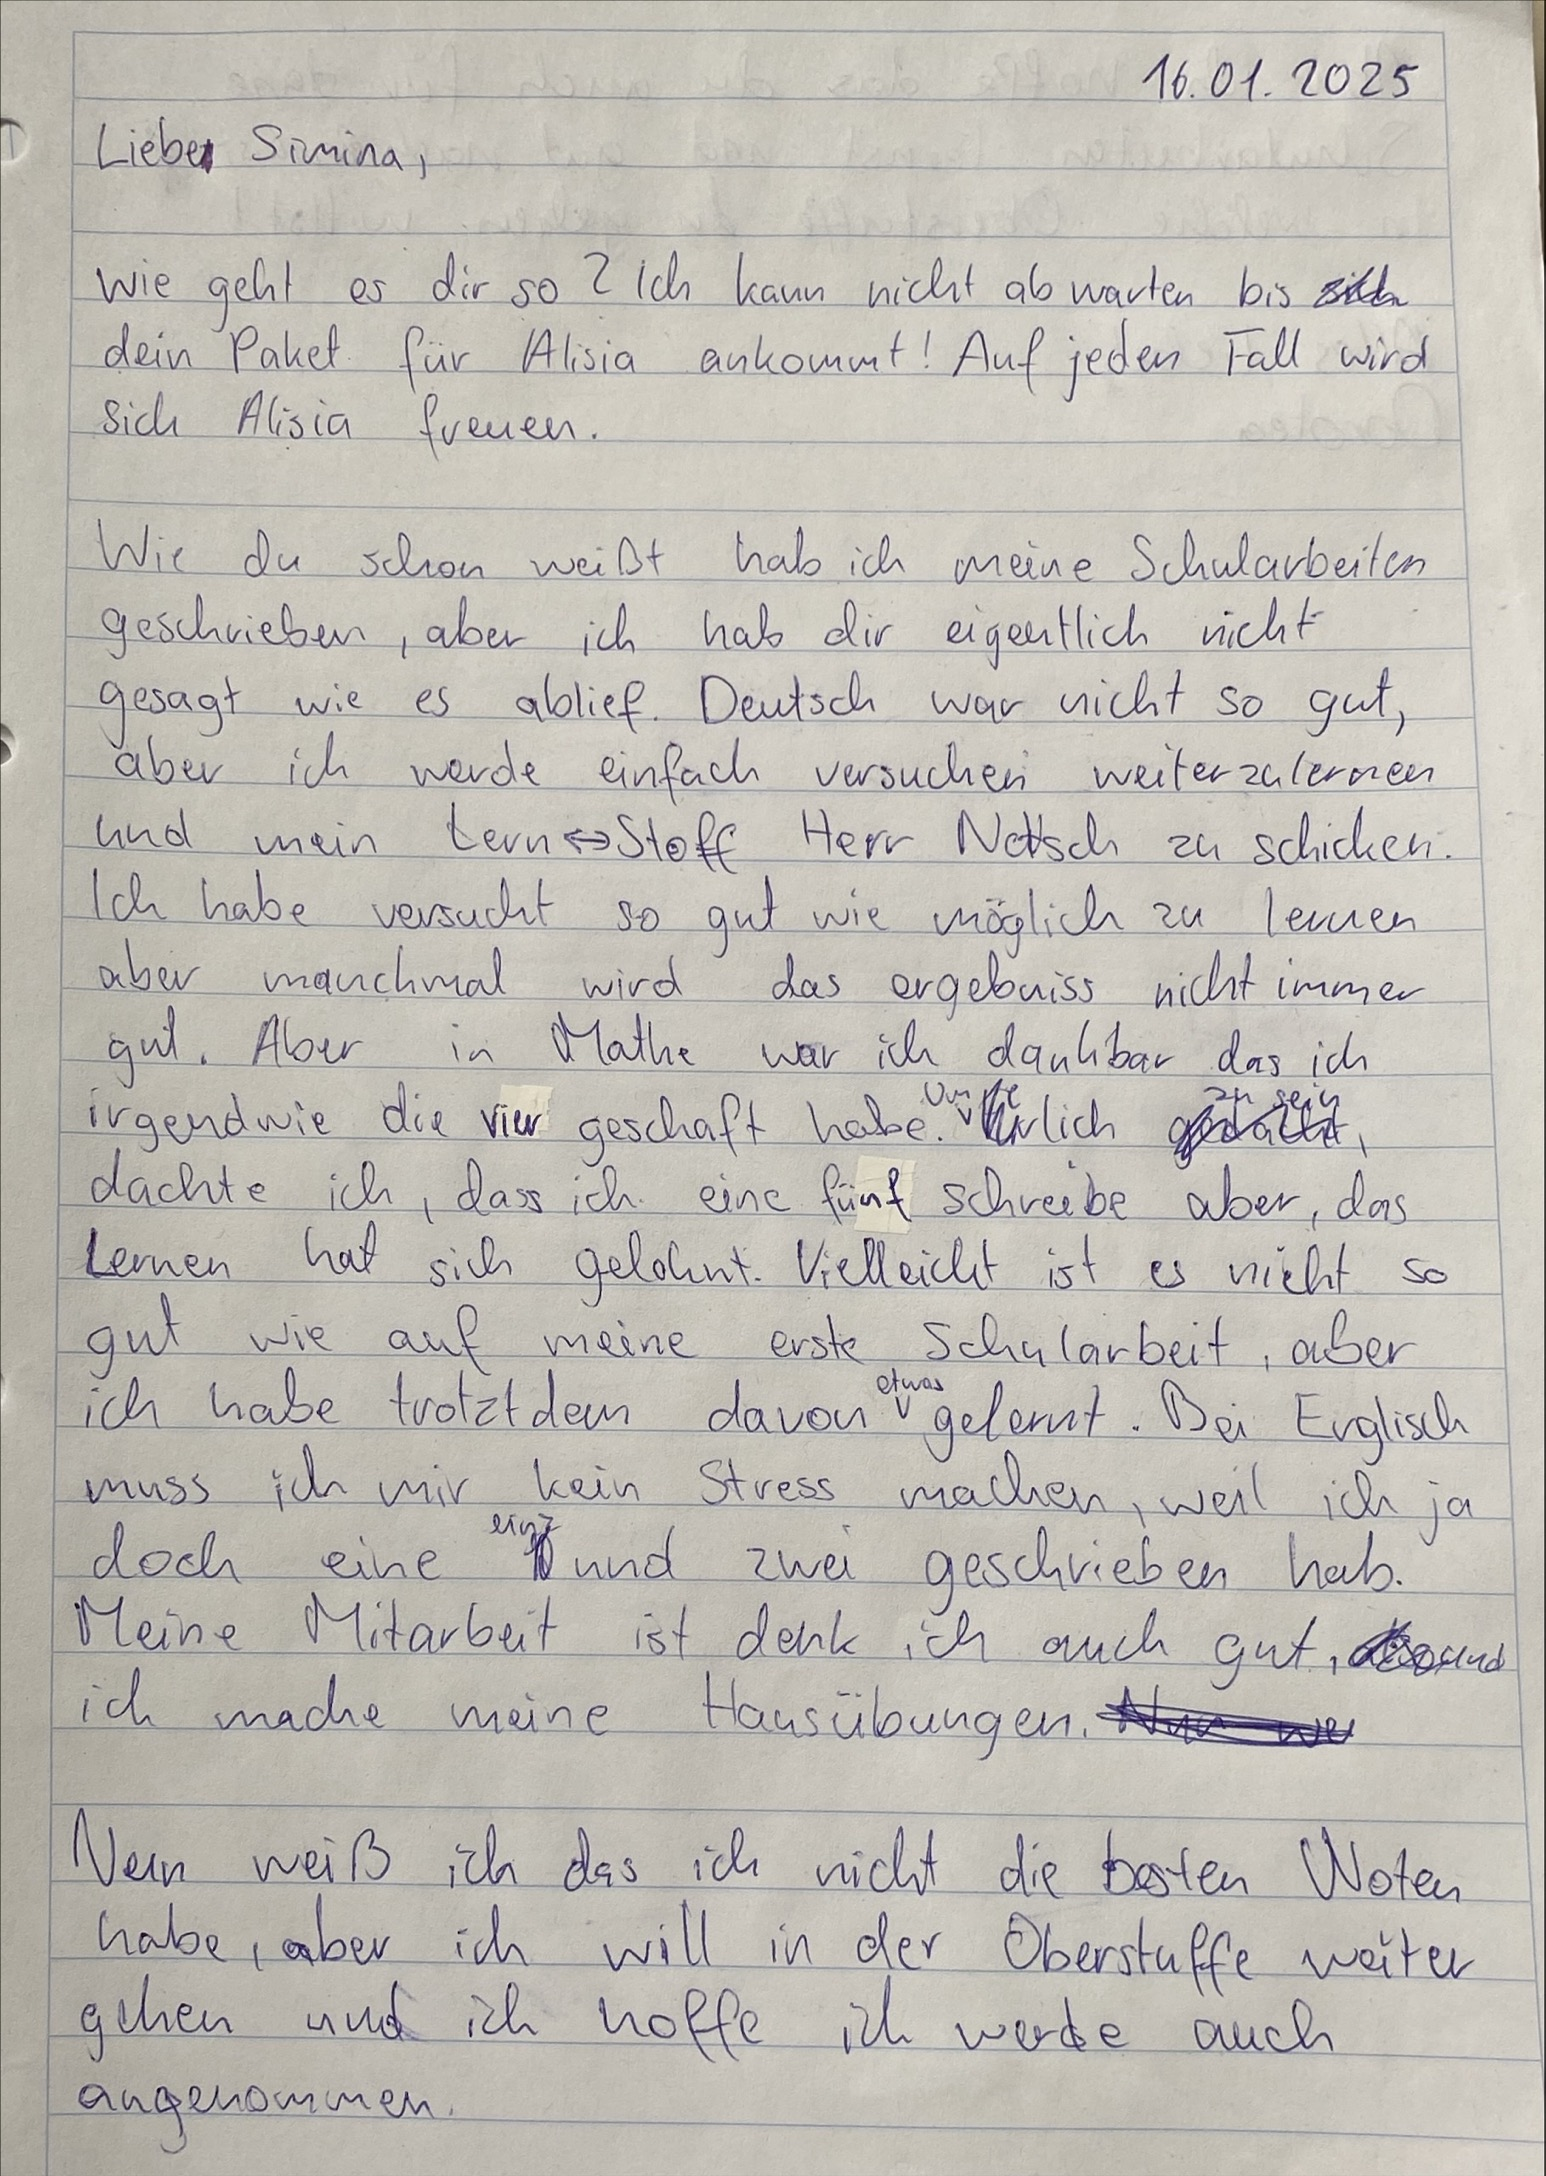 16.01.2025
Liebe Simina,
Wie geht es dir so? Ich kann nicht abwarten bis
dein Paket für Alisia ankommt! Auf jeden Fall wird
sich Alisia freuen.
Wie du schon weißt hab ich meine Schularbeiten
geschrieben, aber ich hab dir eigentlich nicht
gesagt wie es ablief. Deutsch war nicht so gut,
aber ich werde einfach versuchen weiterzulernen
und mein Lern⇔Stoff Herr Notsch zu schicken.
Ich habe versucht so gut wie möglich zu lernen
aber manchmal wird das ergebniss nicht immer
gut. Aber in Mathe war ich dankbar das ich
irgendwie die vier geschaft habe. Um ehrlich zu sein,
dachte ich, dass ich eine fünf schreibe aber, das
Lernen hat sich gelohnt. Vielleicht ist es nicht so
gut wie auf meine erste Schularbeit, aber
ich habe trotztdem davon etwas gelernt. Bei Englisch
muss ich mir kein Stress machen, weil ich ja
doch eine eins und zwei geschrieben hab.
Meine Mitarbeit ist denk ich auch gut, und
ich mache meine Hausübungen.
weiß ich das ich nicht die besten Noten
habe, aber ich will in der Oberstuffe weiter
gehen und ich hoffe ich werde auch
angenommen.